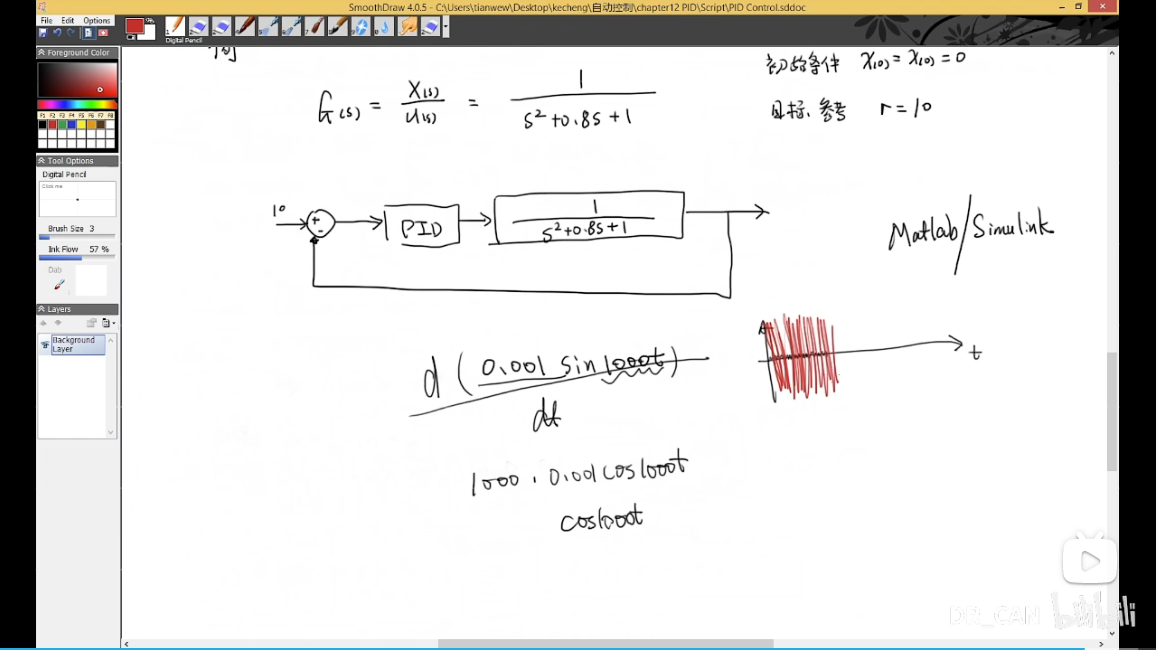 SmoothDraw 4.0.5 - C:\Users\tianwew\Desktop\kecheng\自动控制\chapter12 PID\Script\PID Control.sddoc
File Edit Options
Digital Pencil
Foreground Color
F1 F2 F3 F4 F5 F6 F7 F8
Tool Options
Digital Pencil
Click me
Brush Size 3
Ink Flow 57 %
Dab
Layers
Background Layer
初始条件 X(0) = Ẋ(0) = 0
G(s) = X(s)/U(s) = 1/(s²+0.8s+1)
目标、参考 r = 10
10
+
-
PID
1/(s²+0.8s+1)
Matlab/Simulink
d(0.001 sin1000t)
dt
t
1000 · 0.001cos1000t
cos1000t
DR_CAN bilibili